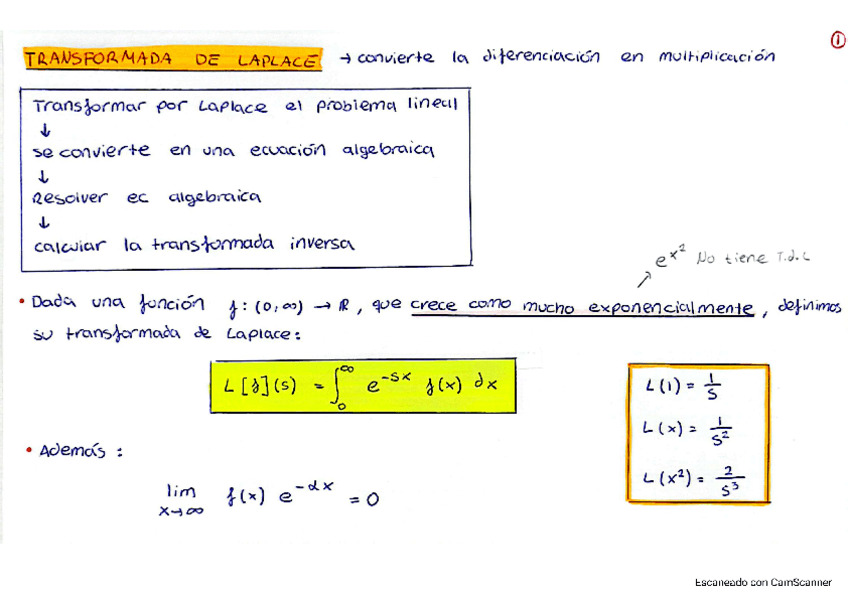 ①
TRANSFORMADA DE LAPLACE → convierte la diferenciación en multiplicación
Transformar por Laplace el problema lineal
↓
se convierte en una ecuación algebraica
↓
Resolver ec algebraica
↓
calcular la transformada inversa
e^{x^2} No tiene T.d.L
• Dada una función f: (0,∞) → ℝ, que crece como mucho exponencialmente, definimos
su transformada de Laplace:
L[f](s) = ∫_0^∞ e^{-sx} f(x) dx
L(1) = 1/s
L(x) = 1/s^2
L(x^2) = 2/s^3
• Además:
lim x→∞ f(x) e^{-αx} = 0
Escaneado con CamScanner